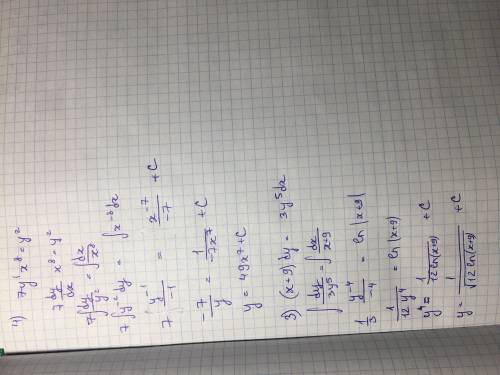 4) 7y' x⁸ = y²
7 dy/dx x⁸ = y²
7 ∫ dy/y² = ∫ dx/x⁸
7 ∫ y⁻² dy = ∫ x⁻⁸ dx
7 y⁻¹/-1 = x⁻⁷/-7 + C
-7/y = 1/-7x⁷ + C
y = 49x⁷ + C
3) (x+9) dy = 3y⁵dx
∫ dy/3y⁵ = ∫ dx/x+9
1/3 y⁻⁴/-4 = ln |x+9|
1/12y⁴ = ln (x+9)
y⁴ = 1/12 ln(x+9) + C
y = 1/√12 ln(x+9) + C